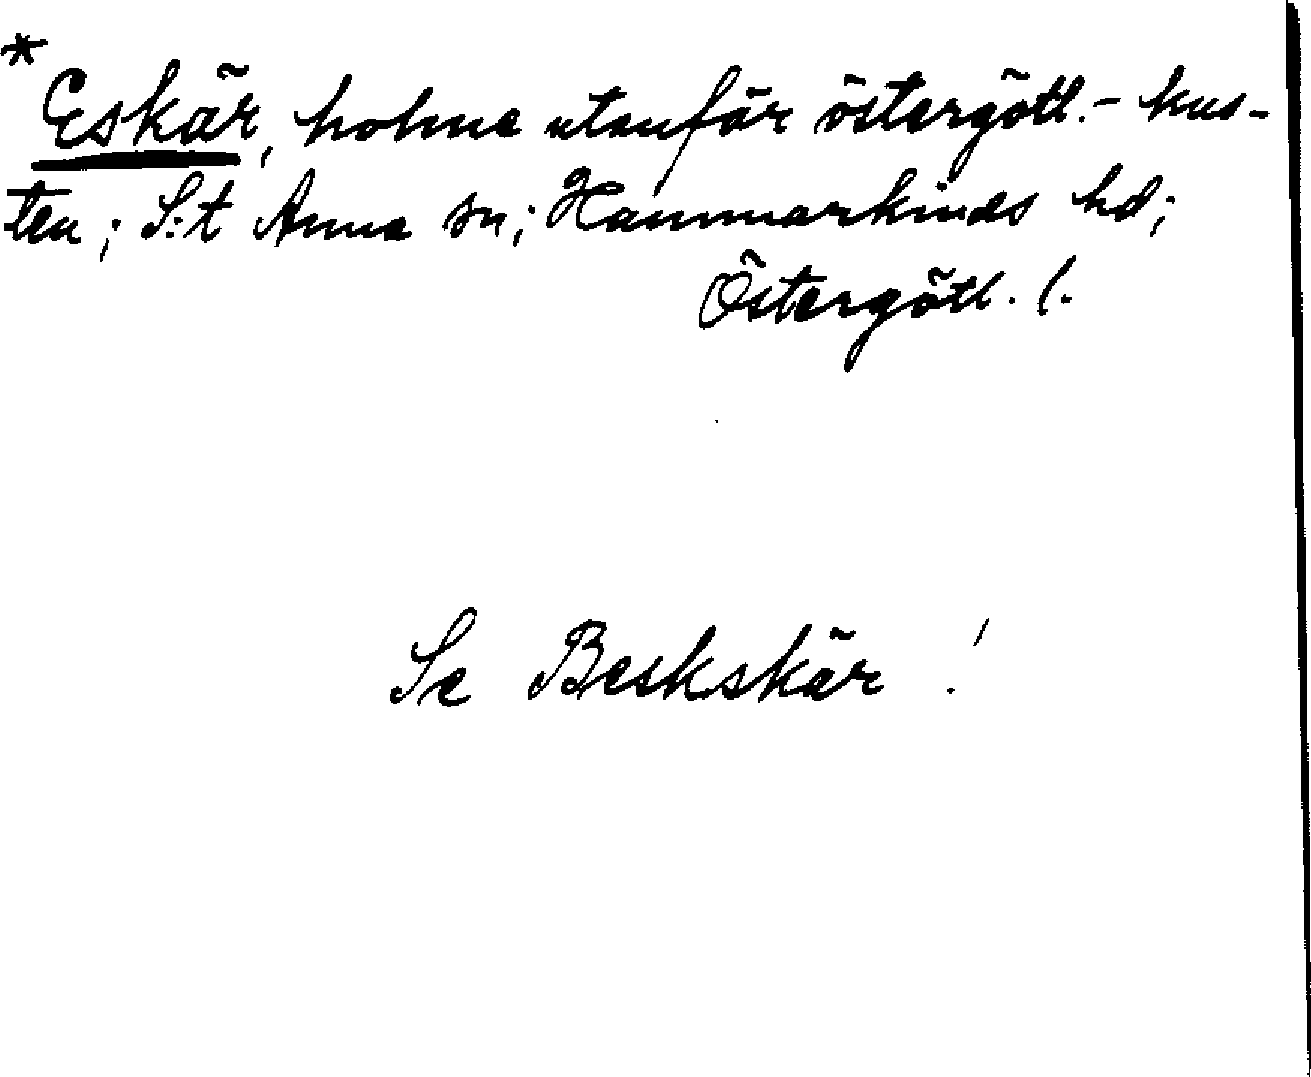 * Eskär, holme utanför östergötl.- kus-
ten; S:t Anna sn; Hammarkinds hd;
Östergötl. l.
Se Beskskär !